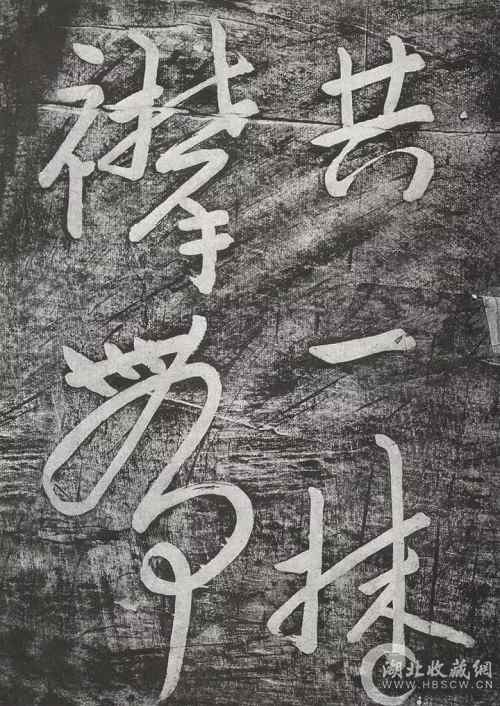 共一抹
襟帶
湖北收藏網
WWW.HBSCW.CN